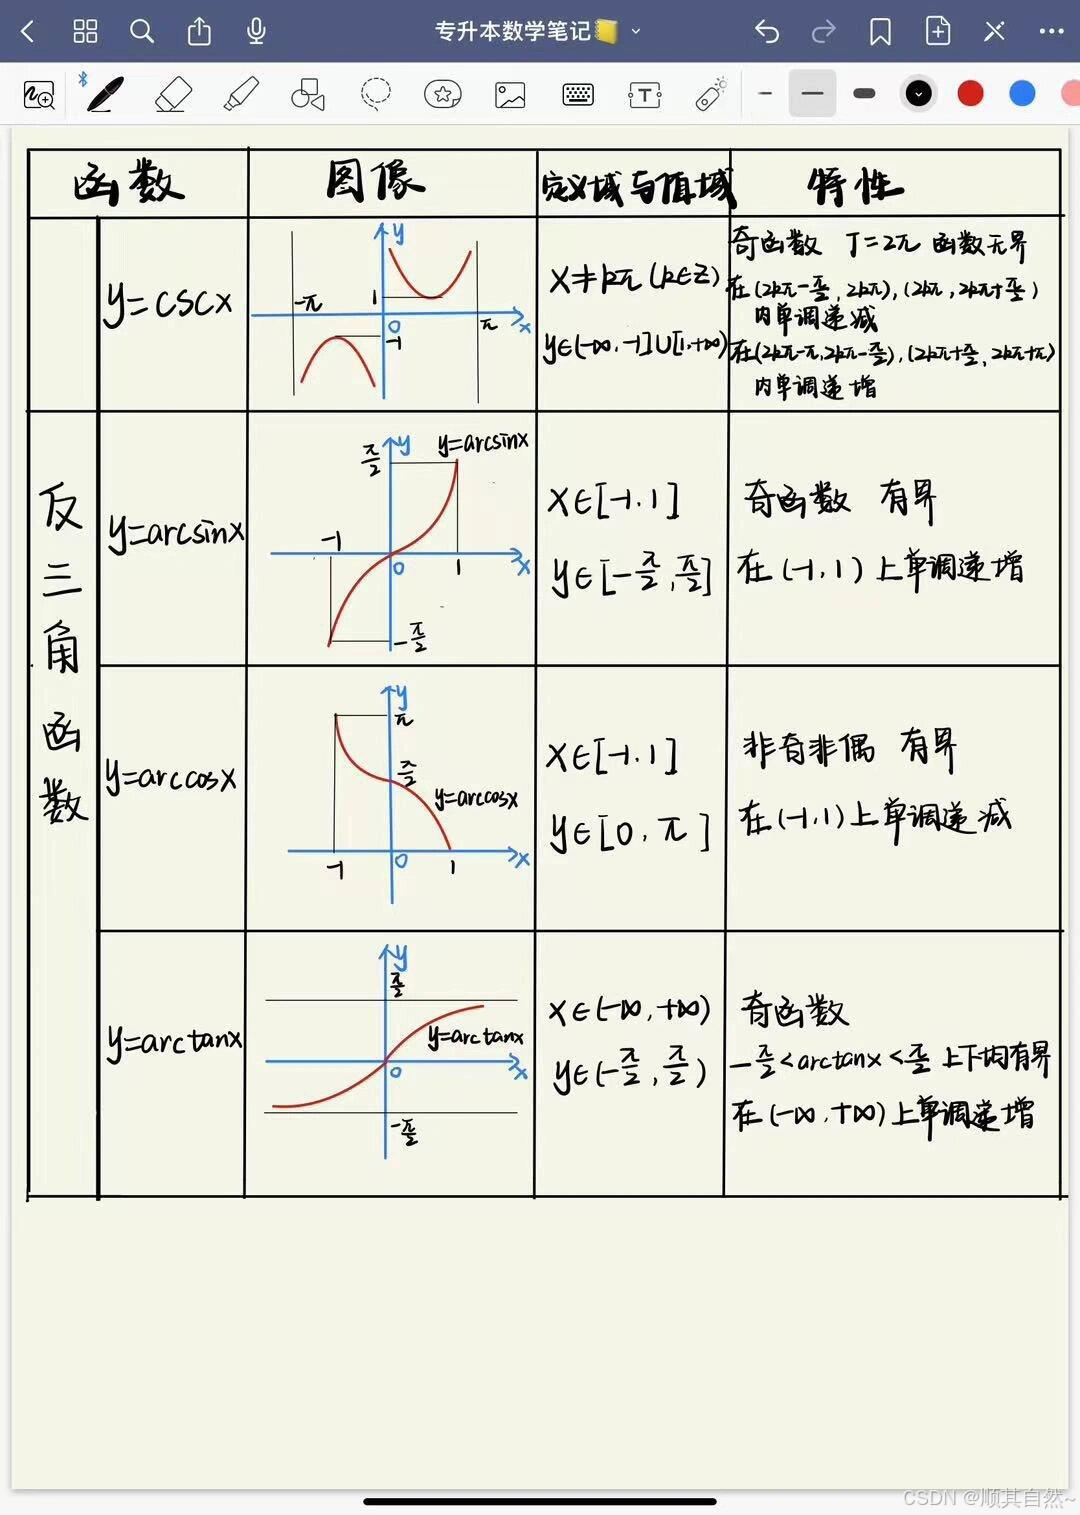 专升本数学笔记
函数 图像 定义域与值域 特性
y=cscx
y
1
-π
0
π
x
-1
x≠kπ(k∈Z)
y∈(-∞,-1]∪[1,+∞)
奇函数 T=2π 函数无界
在(2kπ-π/2,2kπ),(2kπ,2kπ+π/2)
内单调递减
在(2kπ-π,2kπ-π/2),(2kπ+π/2,2kπ+π)
内单调递增
反三角函数
y=arcsinx
π/2
y
y=arcsinx
-1
0
1
x
-π/2
x∈[-1,1]
y∈[-π/2,π/2]
奇函数 有界
在(-1,1)上单调递增
y=arccosx
y
π
π/2
y=arccosx
-1
0
1
x
x∈[-1,1]
y∈[0,π]
非奇非偶 有界
在(-1,1)上单调递减
y=arctanx
y
π/2
y=arctanx
0
x
-π/2
x∈(-∞,+∞)
y∈(-π/2,π/2)
奇函数
-π/2<arctanx<π/2 上下均有界
在(-∞,+∞)上单调递增
CSDN @顺其自然~